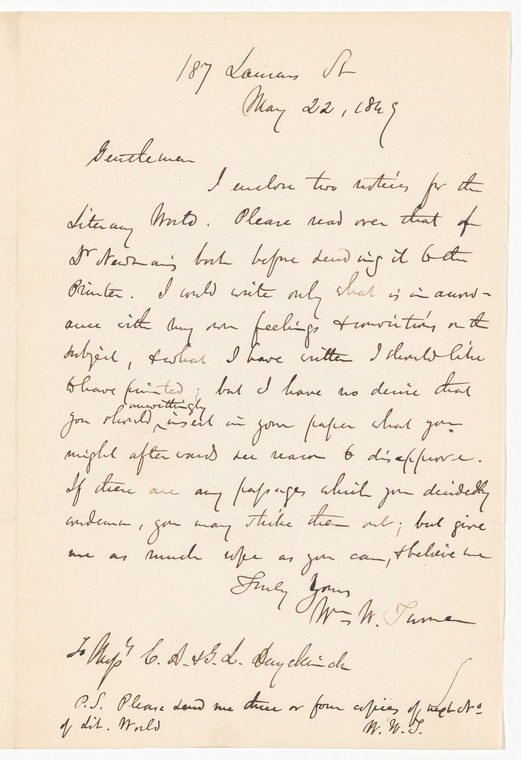 187 Laurens St
May 22, 1849
Gentlemen
I enclose two notices for the
Literary World. Please read over that of
Dr Newman's book before sending it to the
Printer. I could write only what is in accord-
ance with my own feelings & convictions on the
subject, & what I have written I should like
to have printed; but I have no desire that
you should unwittingly insert in your paper what you
might afterwards see reason to disapprove.
If there are any passages which you decidedly
condemn, you may strike them out; but give
me as much rope as you can, & believe me
Truly Yours
Wm W. Turner
To Messrs E. A. & G. L. Duyckinck
P.S. Please send me three or four copies of next No
of Lit. World W. W. T.